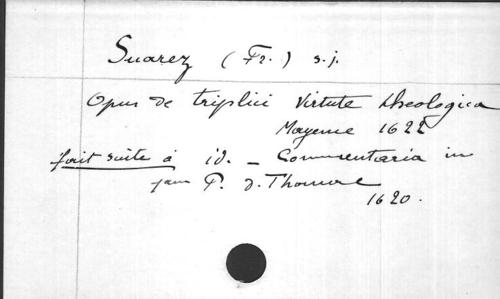 Suarez (Fr.) s.j.
Opus de triplici Virtute theologica
Mayence 1622
fait suite à id. - Commentaria in
jam P. d. Thomae
1620.